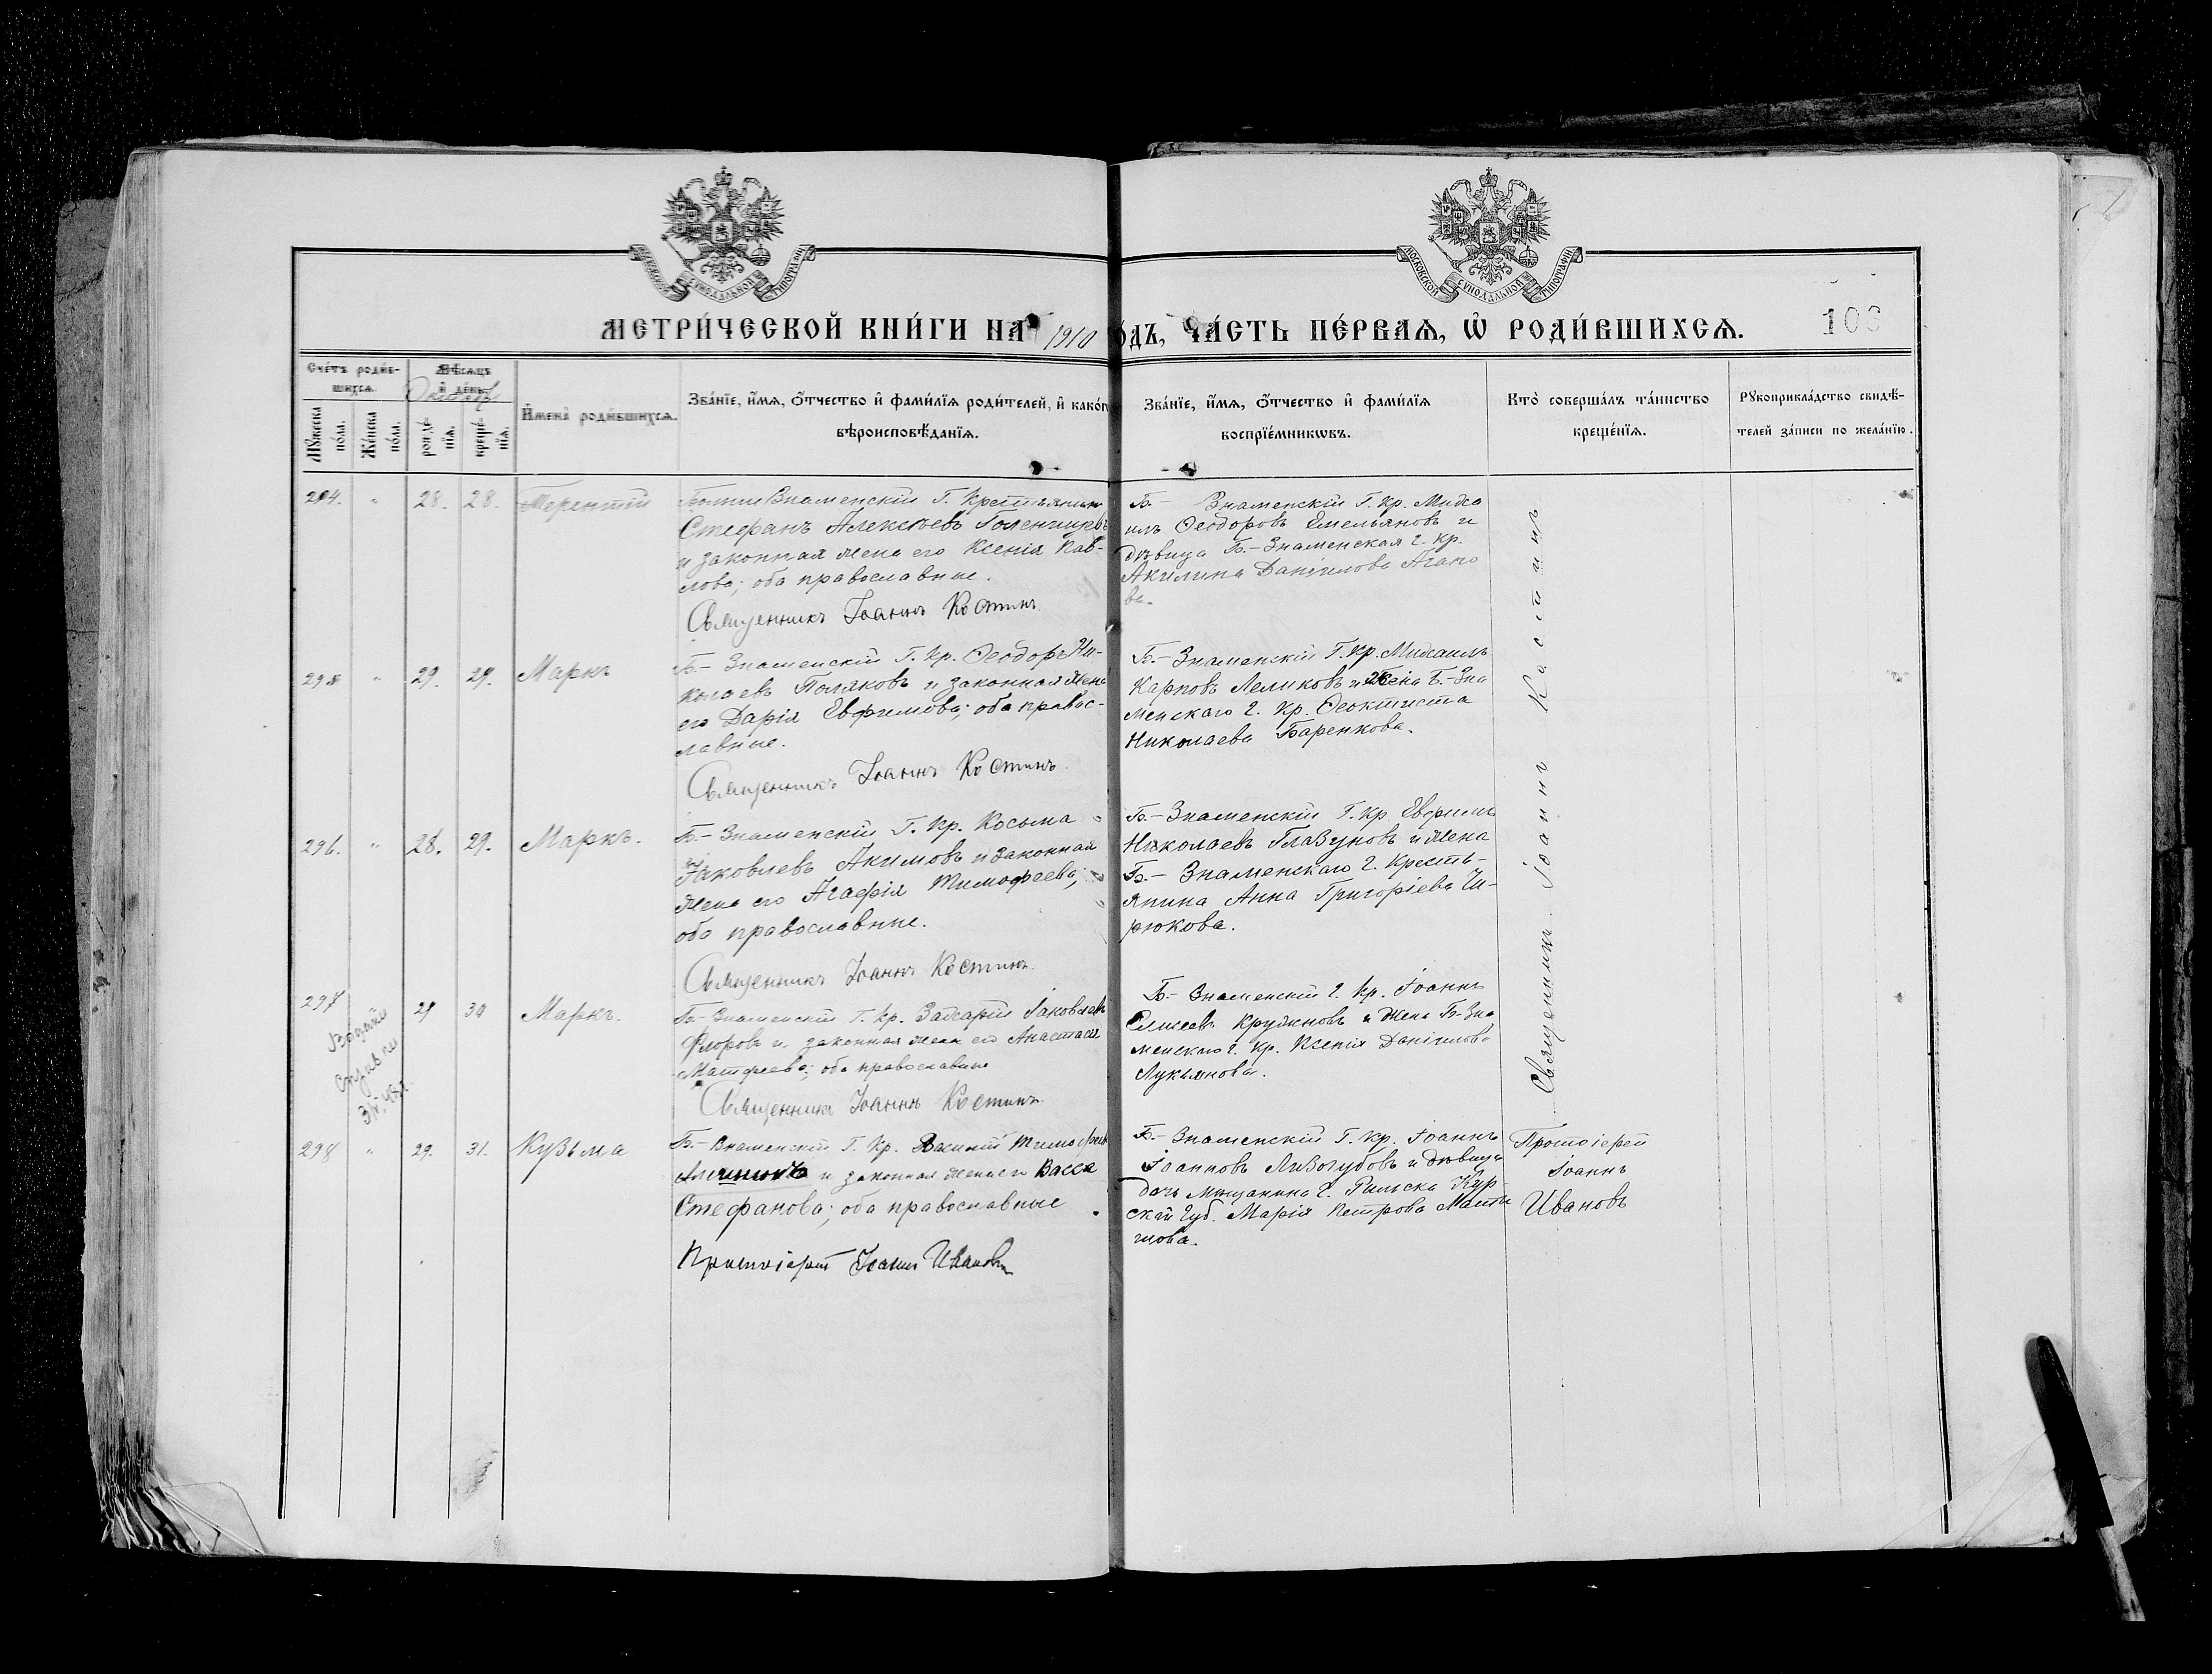 МОСКОВСКОЙ СѴНОДАЛЬНОЙ ТИПОГРАФІИ
МОСКОВСКОЙ СѴНОДАЛЬНОЙ ТИПОГРАФІИ
МЕТРИ́ЧЕСКОЙ КНИ́ГИ НА 1910 ГО́ДЪ, ЧА́СТЬ ПЕ́РВАЯ, Ѿ РОДИ́ВШИХСЯ.
Сче́тъ роди́в-
шихся.
Мꙋ́жеска
по́ла.
Же́нска
по́ла.
Мѣ́сяцъ
и҆ де́нь.
Октябрь
рожде́-
нїя.
креще́-
нїя.
И҆мена̀ роди́вшихся.
Зва́нїе, и҆́мя, ѻ҆́тчество и҆ фами́лїя роди́телей, и҆ како́гѡ
вѣроисповѣ́данїя.
Зва́нїе, и҆́мя, ѻ҆́тчество и҆ фами́лїя
воспрїе́мникѡвъ.
Кто̀ соверша́лъ та́инство
креще́нїя.
Рꙋкоприкла́дство свидѣ́-
телей за́писи по жела́нїю.
294. " 28. 28. Терентій
Знаменскій Г. Крестьянинъ
Стефанъ Алексѣевъ Голенищевъ
и законная жена его Ксенія Пав-
лова; оба православные.
Священникъ Іоаннъ Костинъ.
Б- Знаменскій Г. Кр. Миха
илъ Ѳеодоровъ Емельяновъ и
дѣвица Б.-Знаменская г. кр.
Акилина Даніилова Агапо
ва.
295 " 29. 29. Маркъ
Б- Знаменскій Г. Кр. Ѳеодоръ Ни-
колаевъ Поляковъ и законная жена
его Дарія Евфимова; оба правос-
лавные.
Священникъ Іоаннъ Костинъ.
Б.-Знаменскій Г. Кр. Михаилъ
Карповъ Леликовъ и жена Б.-Зна
менскаго г. кр. Ѳеоктиста
Николаева Баренкова.
296. " 28. 29. Маркъ.
Б- Знаменскій Г. Кр. Косьма
Іаковлевъ Акимовъ и законная
жена его Агафія Тимофеева;
оба православные.
Священникъ Іоаннъ Костинъ.
Б.-Знаменскій Г. Кр. Евфимъ
Николаевъ Глазуновъ и жена
Б.- Знаменскаго г. Кресть-
янина Анна Григоріева Чи-
рюкова.
297 29 30 Маркъ.
Б- Знаменскій Г. Кр. Захарій Іаковлевъ
Флоровъ и законная жена его Анастасія
Матфеева; оба православные
Священникъ Іоаннъ Костинъ.
Б- Знаменскій г. Кр. Іоаннъ
Елисеевъ Кружновъ и жена Б-Зна
менскаго г. Кр. Ксенія Даніилова
Лукьянова.
Священникъ Іоаннъ Костинъ
298 " 29. 31. Кузьма
Б- Знаменскій Г. Кр. Василій Тимофеевъ
и законная жена его Васса
Стефанова; оба православные
Протоіерей Іоаннъ Ивановъ
Б- Знаменскій Г. Кр. Іоаннъ
Іоанновъ Лизогубовъ и дѣвица
дочь мѣщанина г. Рыльска Кур-
ской губ. Марія Петрова
Протоіерей
Іоаннъ
Ивановъ